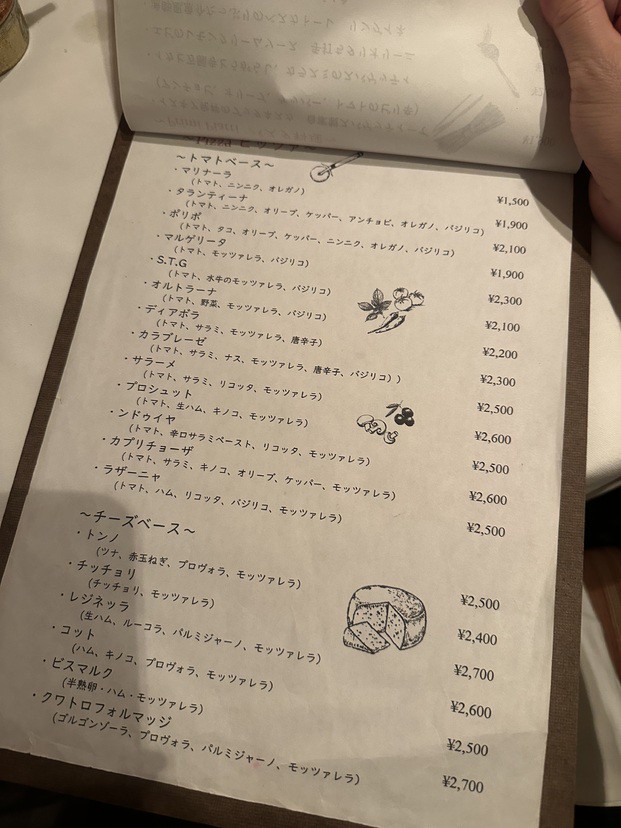 ～Pizza ピッツァ～
～トマトベース～
・マリナーラ ¥1,500
(トマト、ニンニク、オレガノ)
・タランティーナ ¥1,900
(トマト、ニンニク、オリーブ、ケッパー、アンチョビ、オレガノ、バジリコ)
・ポリポ ¥2,100
(トマト、タコ、オリーブ、ケッパー、ニンニク、オレガノ、バジリコ)
・マルゲリータ ¥1,900
(トマト、モッツァレラ、バジリコ)
・S.T.G ¥2,300
(トマト、水牛のモッツァレラ、バジリコ)
・オルトラーナ ¥2,100
(トマト、野菜、モッツァレラ、バジリコ)
・ディアボラ ¥2,200
(トマト、サラミ、モッツァレラ、唐辛子)
・カラブレーゼ ¥2,300
(トマト、サラミ、ナス、モッツァレラ、唐辛子、バジリコ））
・サラーメ ¥2,500
(トマト、サラミ、リコッタ、モッツァレラ)
・プロシュット ¥2,600
(トマト、生ハム、キノコ、モッツァレラ)
・ンドゥイヤ ¥2,500
(トマト、辛口サラミペースト、リコッタ、モッツァレラ)
・カプリチョーザ ¥2,600
(トマト、サラミ、キノコ、オリーブ、ケッパー、モッツァレラ)
・ラザーニャ ¥2,500
(トマト、ハム、リコッタ、バジリコ、モッツァレラ)
～チーズベース～
・トンノ ¥2,500
(ツナ、赤玉ねぎ、プロヴォラ、モッツァレラ)
・チッチョリ ¥2,400
(チッチョリ、モッツァレラ)
・レジネッラ ¥2,700
(生ハム、ルーコラ、パルミジャーノ、モッツァレラ)
・コット ¥2,600
(ハム、キノコ、プロヴォラ、モッツァレラ)
・ビスマルク ¥2,500
(半熟卵・ハム・モッツァレラ)
・クワトロフォルマッジ ¥2,700
(ゴルゴンゾーラ、プロヴォラ、パルミジャーノ、モッツァレラ)